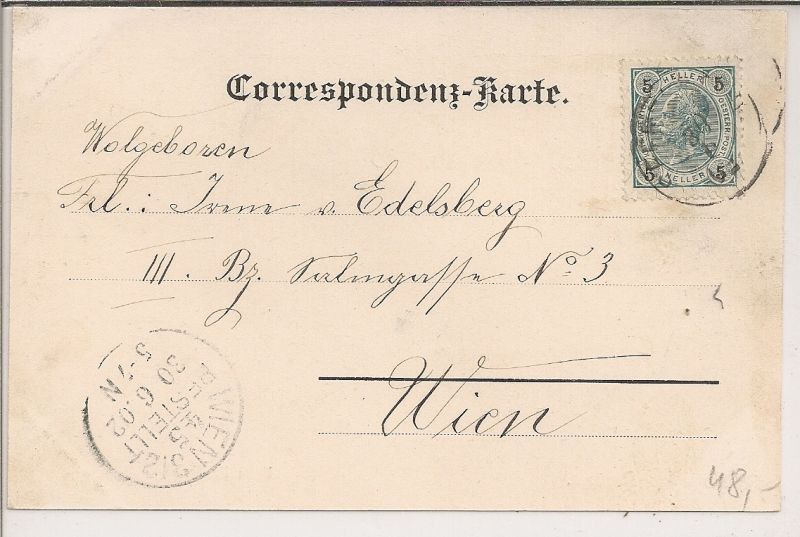 Correspondenz-Karte.
5 HELLER 5
OESTERR. POST
5 HELLER 5
Wolgeboren
Frl.: Irene v. Edelsberg
III. Bz. Salmgasse No. 3
Wien
WIEN 3/2
BESTELLT
30 6 02
5-7 N
48,-